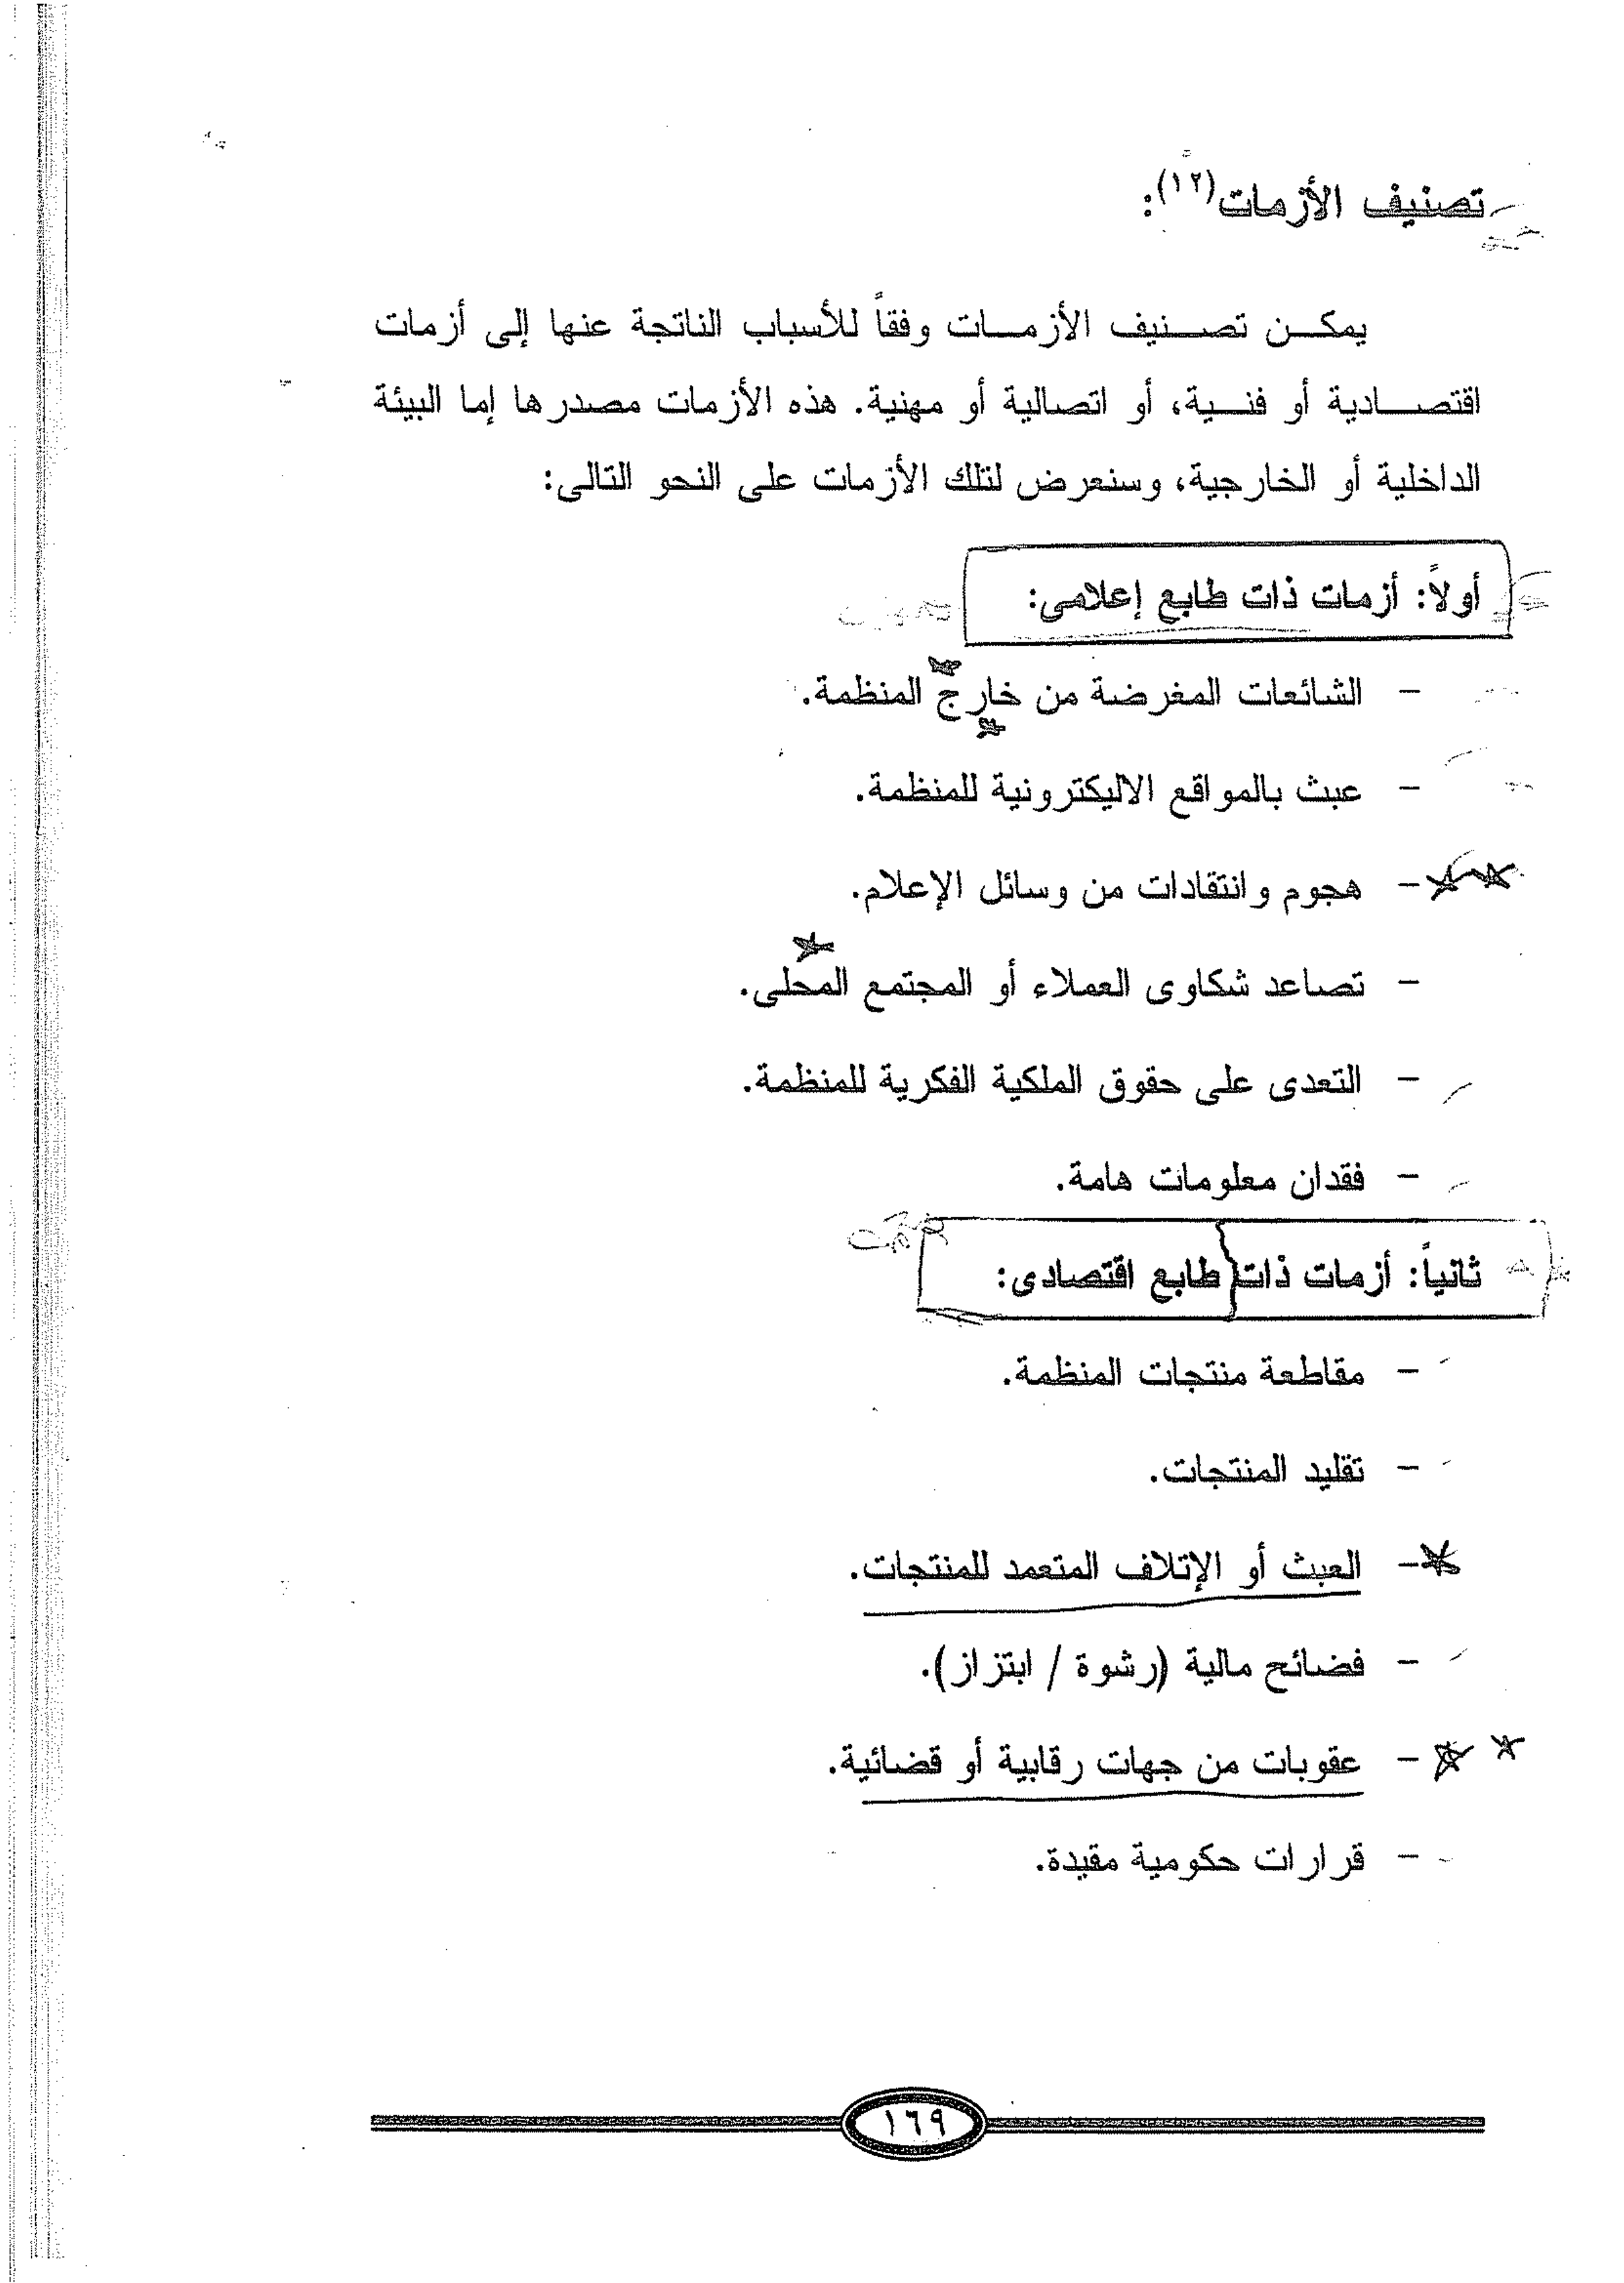 تصنيف الأزمات(١٢):
يمكن تصنيف الأزمات وفقاً للأسباب الناتجة عنها إلى أزمات
اقتصادية أو فنية، أو اتصالية أو مهنية. هذه الأزمات مصدرها إما البيئة
الداخلية أو الخارجية، وسنعرض لتلك الأزمات على النحو التالى:
أولاً: أزمات ذات طابع إعلامى:
- الشائعات المغرضة من خارج المنظمة.
- عبث بالمواقع الاليكترونية للمنظمة.
- هجوم وانتقادات من وسائل الإعلام.
- تصاعد شكاوى العملاء أو المجتمع المحلى.
- التعدى على حقوق الملكية الفكرية للمنظمة.
- فقدان معلومات هامة.
ثانياً: أزمات ذات طابع اقتصادى:
- مقاطعة منتجات المنظمة.
- تقليد المنتجات.
- العبث أو الإتلاف المتعمد للمنتجات.
- فضائح مالية (رشوة / ابتزاز).
- عقوبات من جهات رقابية أو قضائية.
- قرارات حكومية مقيدة.
١٦٩